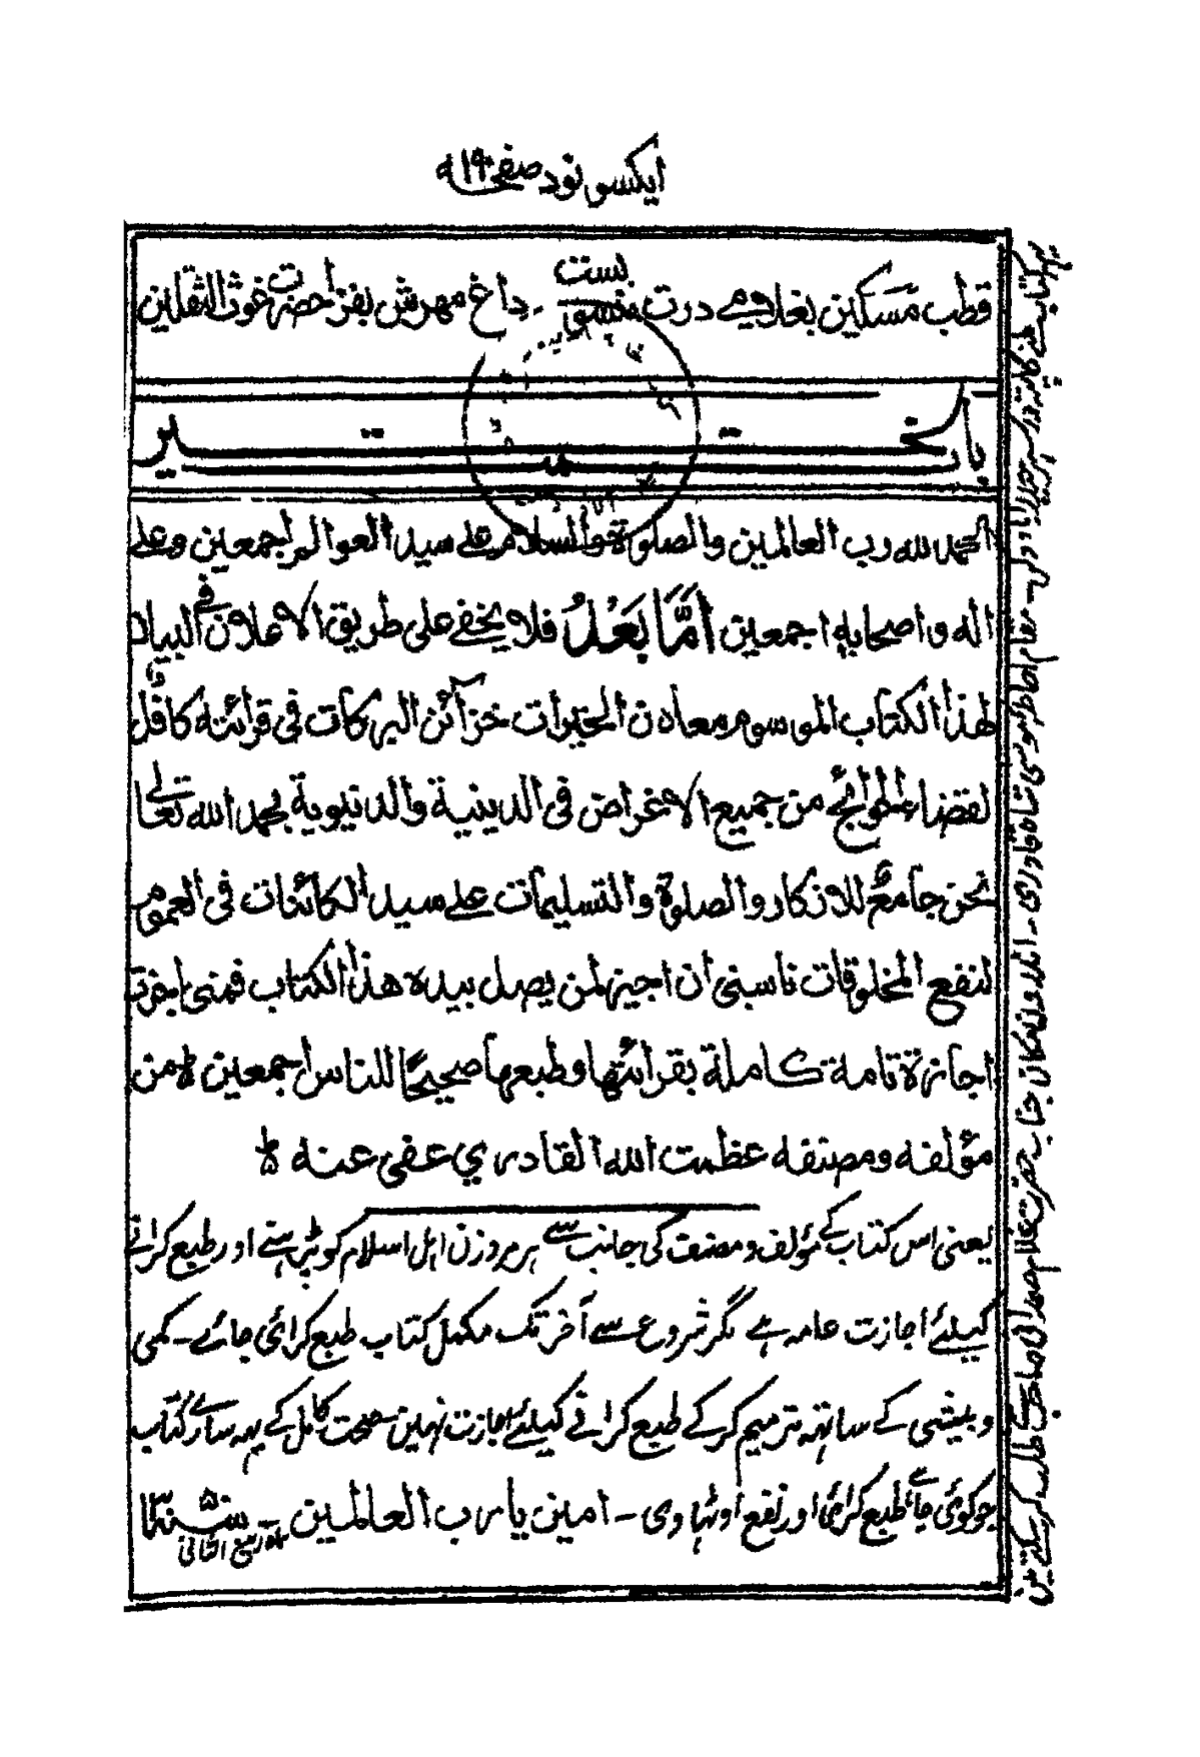 ایکسو نود صفحہ ۱۹۰
قطب مسکین بغلامی درت منسوب است ۔ داغ مهرش بفزا حضرت غوث الثقلین
بالخیر
الحمد لله رب العالمین والصلوة والسلام علی سید العوالم اجمعین وعلی
اله واصحابه اجمعین اَمَّا بَعْدُ فلا یخفی علی طریق الاعلان فی البیان
لهذا الکتاب الموسوم معادن الخیرات خزائن البرکات فی قرائته کافی
لقضاء الحوائج من جمیع الاغراض فی الدینیة والدنیویة بحمد الله تعالی
نحن جامع للاذکار والصلوة والتسلیمات علی سید الکائنات فی العموم
لنفع المخلوقات ناسبنی ان اجیز لمن یصل بیده هذا الکتاب فمنی اجزت
اجازة تامة کاملة بقرائتها وطبعها صحیحًا للناس اجمعین من
مؤلفه ومصنفه عظمت الله القادری عفی عنه
یعنی اس کتاب کے مؤلف و مصنف کی جانب سے ہر مرد وزن اہل اسلام کو پڑہنے اور طبع کرانے
کیلئے اجازت عامہ ہے مگر شروع سے آخر تک مکمل کتاب طبع کرائی جائے ۔ کمی
وبیشی کے ساتہہ ترمیم کرکے طبع کرانے کیلئے اجازت نہین صحت کامل کے یہہ سارے کتاب
جو کوئی چاہے طبع کرائی اور نفع اوٹہاوی ۔ امین یا رب العالمین ۔
ماہ ربیع الثانی
یہہ کتاب ملنے کا پتہ حیدرآباد دکن ۔ مقام احاطہ موسی شاہ قادری ۔ اندرون مکان جناب حضرت غلام صمدانی صاحب سے طلب کر سکتے ہین